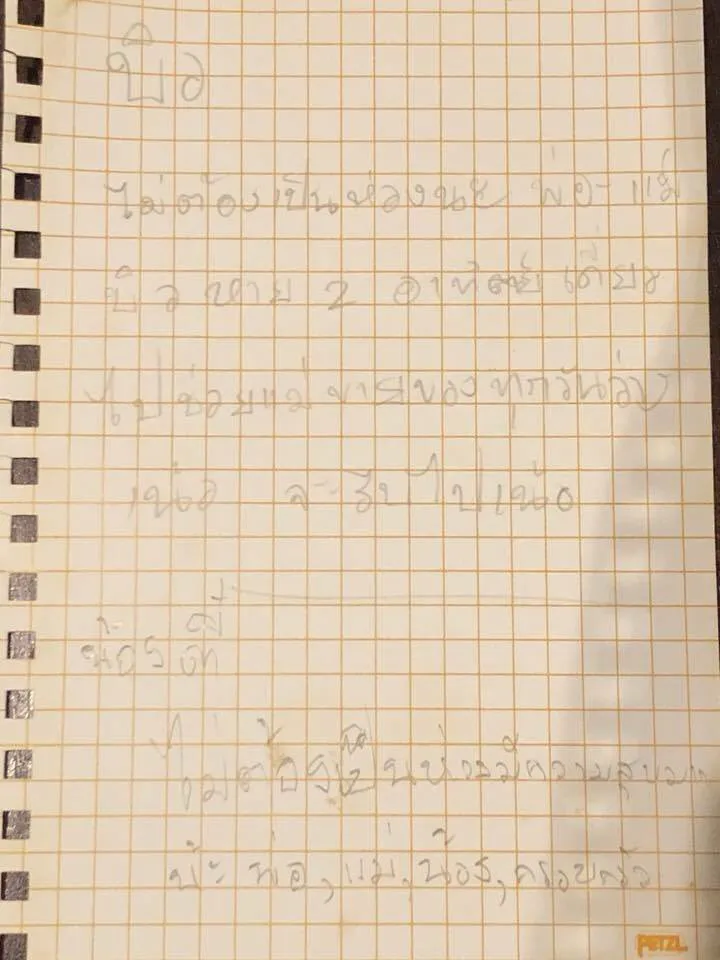 บิว
ไม่ต้องเป็นห่วงนะ พ่อ-แม่
บิว หาย 2 อาทิตย์ เดี๋ยว
ไปช่วยแม่ขายของทุกวัน
จะรีบไป
น้อง
ไม่ต้องเป็นห่วงมีความสุข
พ่อ, แม่, น้อง, ครอบครัว
PETZL